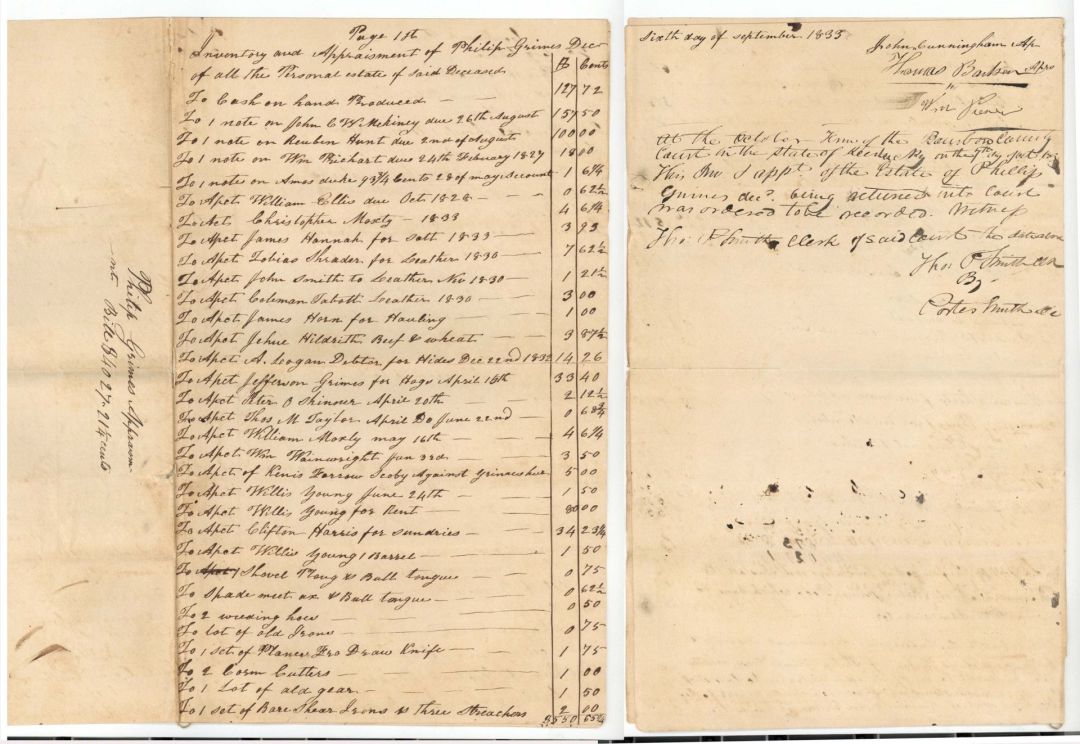 Philip Grimes Apprasm
Bill $4027.21¼ cents
Page 1st
Inventory and Appraisment of Philip Grimes Decd
of all the Personal estate of said Deceased $ Cents
To Cash on hand Produced 127 72
To 1 note on John C W Mckiney due 26th August 157 50
To 1 note on Reuben Hunt due 2nd of August 100 00
To 1 note on Wm Richart due 24th February 1827 18 00
To 1 notes on Amos duke 93¾ Cents 28 of may Account 1 6¼
To Apct William Ellis due Oct 1828 0 62½
To Act Christopher Moxly 1833 4 6¼
To Apct James Hannah for Salt 1833 3 93
To Apct Tobias Shrader for Leather 1830 7 62½
To Apct John Smith to Leathers Nov 1830 1 21½
To Apct Coleman Tabott Leather 1830 3 00
To Apct James Horn for Hauling 1 00
To Apct Jehue Hildrith Beef & wheat 3 87½
To Apct A. Logan Debtor for Hides Dec 22nd 1832 14 26
To Apct Jefferson Grimes for Hogs April 15th 33 40
To Apct Peter O Skinner April 20th 2 12½
To Apct Thos M Taylor April Do June 22nd 0 68¾
To Apct William Moxly may 16th 4 6¼
To Apct Wm Wainwright Jan 3rd 3 50
To Apct of Kenis Farrow Scoby Against Grimes 5 00
To Apct Willis Young June 24th 1 50
To Apct Willis Young for Rent 80 00
To Apct Clifton Harris for sundries 34 23¼
To Apct Willis Young 1 Barrel 1 50
To 1 Shovel Ploug & Bull tongue 0 75
To Spade mut ax & Bull tongue 0 62½
To 2 weeding hoes 0 50
To lot of old Irons 0 75
To 1 set of Planes Fro Draw Knife 1 75
To 2 Corn Cutters 1 00
To 1 Lot of old gear 1 50
To 1 set of Bare Shear Irons & three Streachers 2 00
Sixth day of september 1833
John Cunningham Ap
Thomas Apro
Wm
At the October Term of the Bourbon County
Court in the state of Kentucky on the 7th day Oct
This Inv & appt of the Estate of Philip
Grimes decd. being returned into Court
was ordered to be recorded. Witness
Tho. P. Smith Clerk of said Court the date above
Thos P Smith Clk
By
Porter Smith Dc